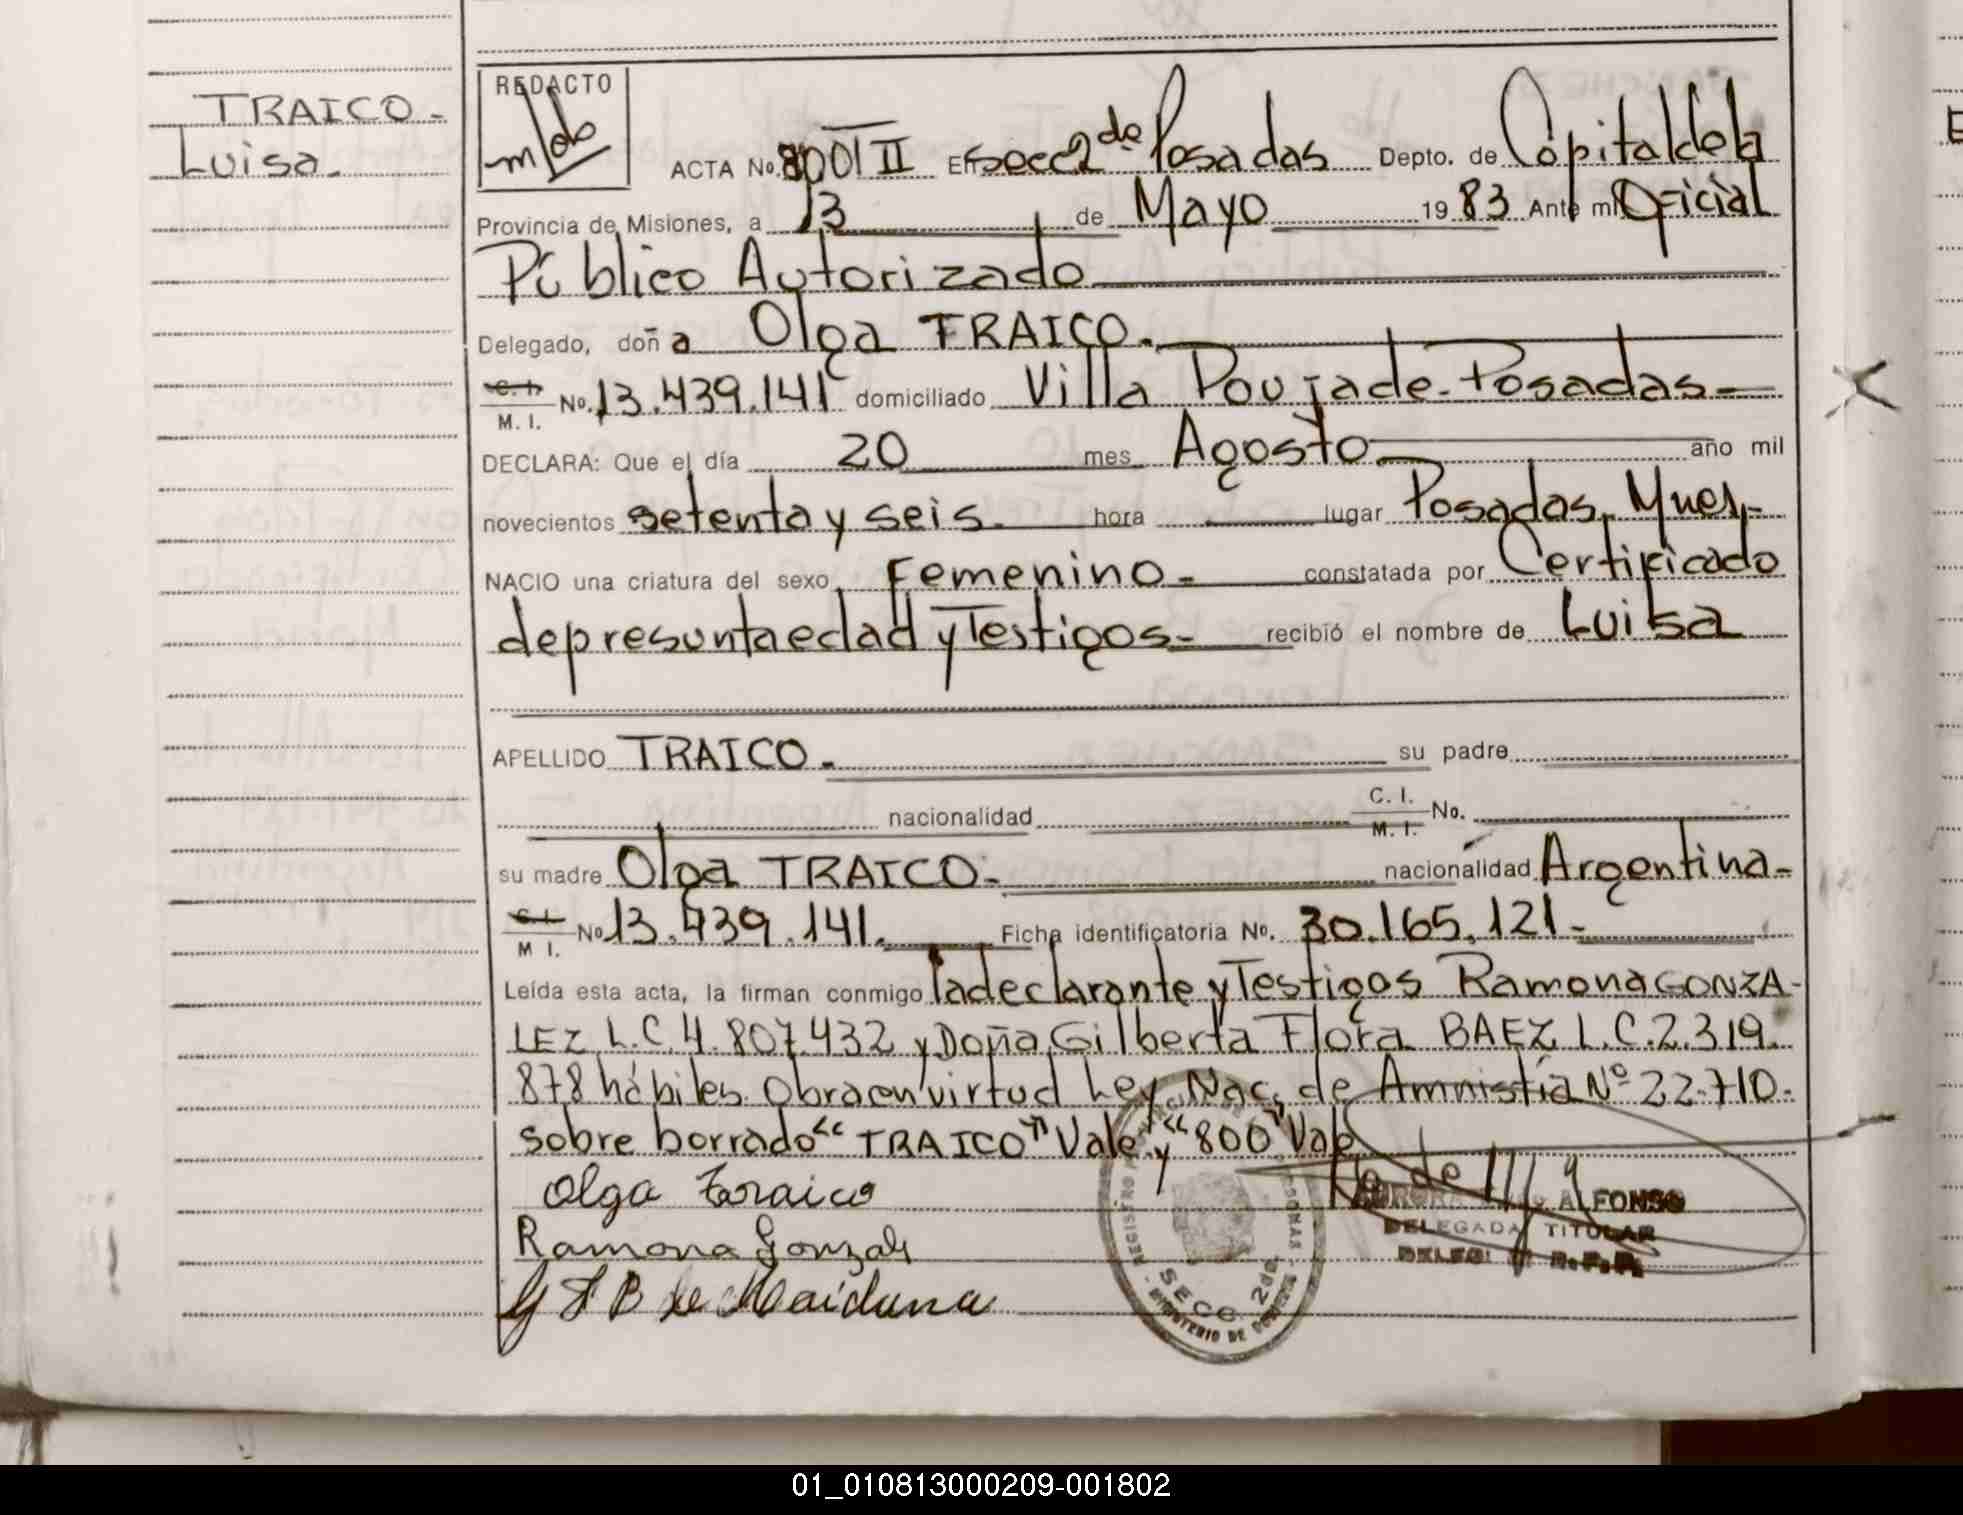 TRAICO-
Luisa.
REDACTO
ACTA No. 800 II En secc 2 de Posadas Depto. de Capital de la
Provincia de Misiones, a 13 de Mayo 1983 Ante mi Oficial
Público Autorizado
Delegado, doña Olga TRAICO.
C. I. M. I. No. 13.439.141 domiciliado Villa Poujade-Posadas-
DECLARA: Que el día 20 mes Agosto año mil
novecientos setenta y seis. hora lugar Posadas, Mnes,-
NACIO una criatura del sexo Femenino- constatada por Certificado
de presunta edad y Testigos- recibió el nombre de Luisa
APELLIDO TRAICO- su padre
nacionalidad C. I. M. I. No.
su madre Olga TRAICO- nacionalidad Argentina-
C. I. M I. No 13.439.141. Ficha identificatoria No. 30.165.121-
Leída esta acta, la firman conmigo la declarante y Testigos Ramona GONZA-
LEZ L.C. 4.807.432 y Doña Gilberta Flora BAEZ L.C. 2.319.
878 hábiles. Obra en virtud Ley Nac. de Amnistía Nº 22.710.
sobre borrado "TRAICO" Vale y "800" Vale
Olga Traico
Ramona Gonzalz
G F B de Maidana
ALFONSO
DELEGADA TITULAR
R.P.P.
REGISTRO
SECC. 2da.
MINISTERIO DE GOBIERNO
01_010813000209-001802